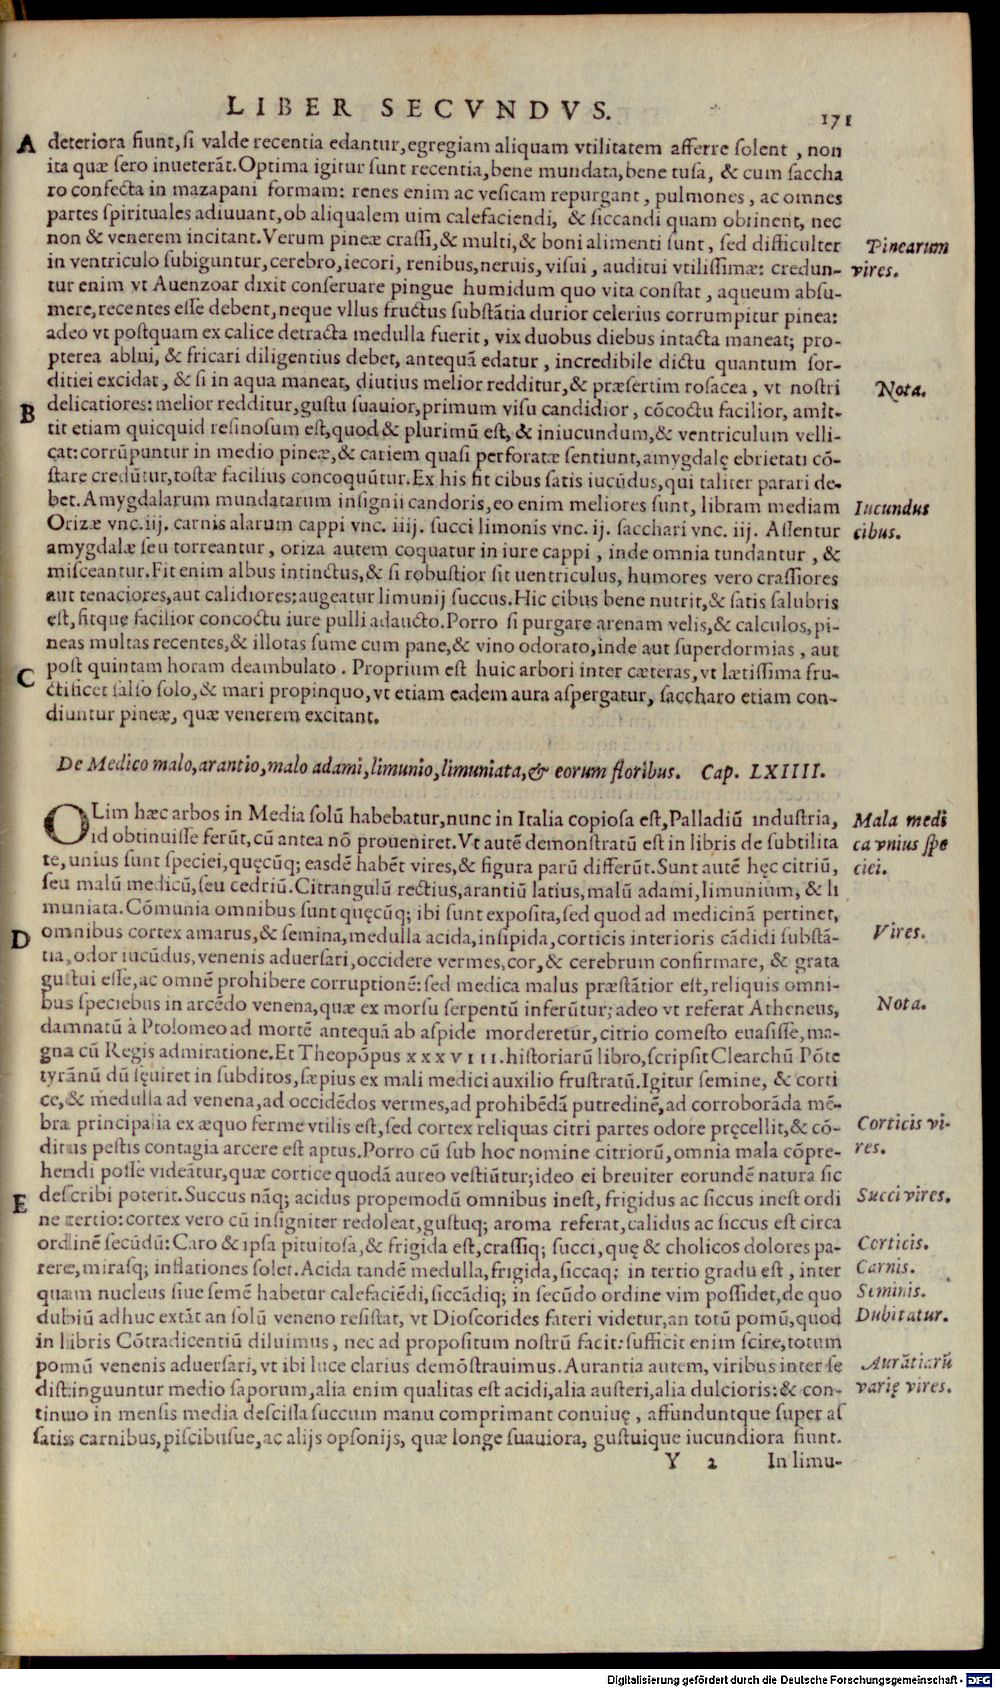 LIBER SECVNDVS. 171
A deteriora fiunt, si valde recentia edantur, egregiam aliquam vtilitatem afferre solent, non
ita quæ sero inueterāt. Optima igitur sunt recentia, bene mundata, bene tusa, & cum saccha
ro confecta in mazapani formam: renes enim ac vesicam repurgant, pulmones, ac omnes
partes spirituales adiuuant, ob aliqualem uim calefaciendi, & siccandi quam obtinent, nec
non & venerem incitant. Verum pineæ crassi, & multi, & boni alimenti sunt, sed difficulter
Pinearum
in ventriculo subiguntur, cerebro, iecori, renibus, neruis, visui, auditui vtilissimæ: credun-
vires.
tur enim vt Auenzoar dixit conseruare pingue humidum quo vita constat, aqueum absu-
mere, recentes esse debent, neque vllus fructus substātia durior celerius corrumpitur pinea:
adeo vt postquam ex calice detracta medulla fuerit, vix duobus diebus intacta maneat; pro-
pterea ablui, & fricari diligentius debet, antequā edatur, incredibile dictu quantum sor-
ditiei excidat, & si in aqua maneat, diutius melior redditur, & præsertim rosacea, vt nostri
Nota.
B delicatiores: melior redditur, gustu suauior, primum visu candidior, cōcoctu facilior, amit-
tit etiam quicquid resinosum est, quod & plurimū est, & iniucundum, & ventriculum velli-
cat: corrūpuntur in medio pineæ, & cariem quasi perforatæ sentiunt, amygdalę ebrietati cō-
stare credūtur, tostæ facilius concoquūtur. Ex his fit cibus satis iucūdus, qui taliter parari de-
bet. Amygdalarum mundatarum insignii candoris, eo enim meliores sunt, libram mediam
Iucundus
Orizæ vnc. iij. carnis alarum cappi vnc. iiij. succi limonis vnc. ij. sacchari vnc. iij. Assentur
cibus.
amygdalæ seu torreantur, oriza autem coquatur in iure cappi, inde omnia tundantur, &
misceantur. Fit enim albus intinctus, & si robustior sit uentriculus, humores vero crassiores
aut tenaciores, aut calidiores: augeatur limunij succus. Hic cibus bene nutrit, & satis salubris
est, fitque facilior concoctu iure pulli adaucto. Porro si purgare arenam velis, & calculos, pi-
neas multas recentes, & illotas sume cum pane, & vino odorato, inde aut superdormias, aut
C post quintam horam deambulato. Proprium est huic arbori inter cæteras, vt lætissima fru-
ctificet salso solo, & mari propinquo, vt etiam eadem aura aspergatur, saccharo etiam con-
diuntur pineæ, quæ venerem excitant.
De Medico malo, arantio, malo adami, limunio, limuniata, & eorum floribus. Cap. LXIIII.
OLim hæc arbos in Media solū habebatur, nunc in Italia copiosa est, Palladiū industria,
Mala medi
id obtinuisse ferūt, cū antea nō proueniret. Vt autē demonstratū est in libris de subtilita
ca vnius spe
te, vnius sunt speciei, quęcūq; easdē habēt vires, & figura parū differūt. Sunt autē hęc citriū,
ciei.
seu malū medicū, seu cedriū. Citrangulū rectius, arantiū latius, malū adami, limunium, & li
muniata. Cōmunia omnibus sunt quęcūq; ibi sunt exposita, sed quod ad medicinā pertinet,
D omnibus cortex amarus, & semina, medulla acida, insipida, corticis interioris cādidi substā-
Vires.
tia, odor iucūdus, venenis aduersari, occidere vermes, cor, & cerebrum confirmare, & grata
gustui esse, ac omnē prohibere corruptionē: sed medica malus præstātior est, reliquis omni-
bus speciebus in arcēdo venena, quæ ex morsu serpentū inferūtur; adeo vt referat Atheneus,
Nota.
damnatū à Ptolomeo ad mortē antequā ab aspide morderetur, citrio comesto euasisse, ma-
gna cū Regis admiratione. Et Theopōpus xxxviii. historiarū libro, scripsit Clearchū Pōte
tyrānū dū sęuiret in subditos, sæpius ex mali medici auxilio frustratū. Igitur semine, & corti
ce, & medulla ad venena, ad occidēdos vermes, ad prohibēdā putredinē, ad corroborāda mē-
bra principalia ex æquo ferme vtilis est, sed cortex reliquas citri partes odore pręcellit, & cō-
Corticis vi-
ditus pestis contagia arcere est aptus. Porro cū sub hoc nomine citriorū, omnia mala cōpre-
res.
hendi posse videātur, quæ cortice quodā aureo vestiūtur; ideo ei breuiter eorundē natura sic
E describi poterit. Succus nāq; acidus propemodū omnibus inest, frigidus ac siccus inest ordi
Succi vires.
ne tertio: cortex vero cū insigniter redoleat, gustuq; aroma referat, calidus ac siccus est circa
ordinē secūdū: Caro & ipsa pituitosa, & frigida est, crassiq; succi, quę & cholicos dolores pa-
Corticis.
rere, mirasq; inflationes solet. Acida tandē medulla, frigida, siccaq; in tertio gradu est, inter
Carnis.
quam nucleus siue semē habetur calefaciēdi, siccādiq; in secūdo ordine vim possidet, de quo
Seminis.
dubiū adhuc extāt an solū veneno resistat, vt Dioscorides fateri videtur, an totū pomū, quod
Dubitatur.
in libris Cōtradicentiū diluimus, nec ad propositum nostrū facit: sufficit enim scire, totum
pomū venenis aduersari, vt ibi luce clarius demōstrauimus. Aurantia autem, viribus inter se
Aurātiarū
distinguuntur medio saporum, alia enim qualitas est acidi, alia austeri, alia dulcioris: & con-
varię vires.
tinuo in mensis media descissa succum manu comprimant conuiuę, affunduntque super as
satis carnibus, piscibusue, ac alijs opsonijs, quæ longe suauiora, gustuique iucundiora fiunt.
Y 2 In limu-
Digitalisierung gefördert durch die Deutsche Forschungsgemeinschaft - DFG